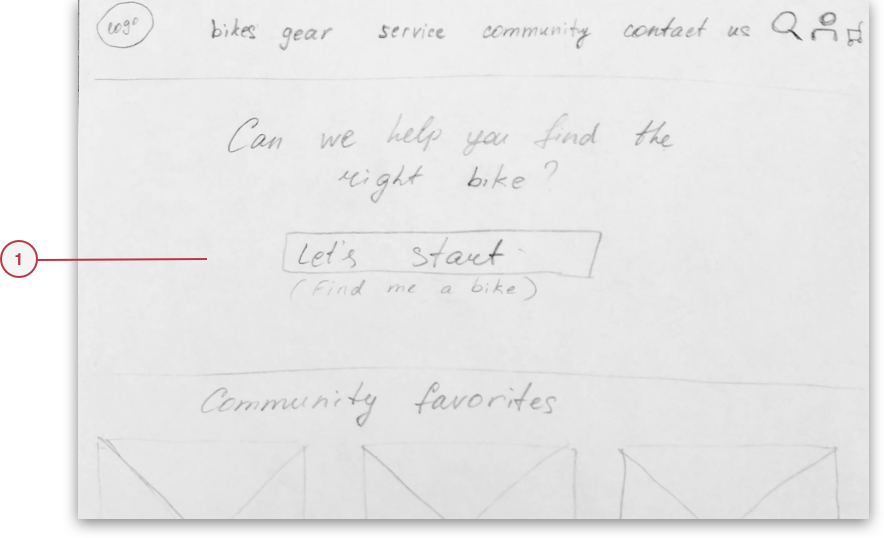 logo bikes gear service community contact us
Can we help you find the
right bike?
1
Let's start
(Find me a bike)
Community favorites